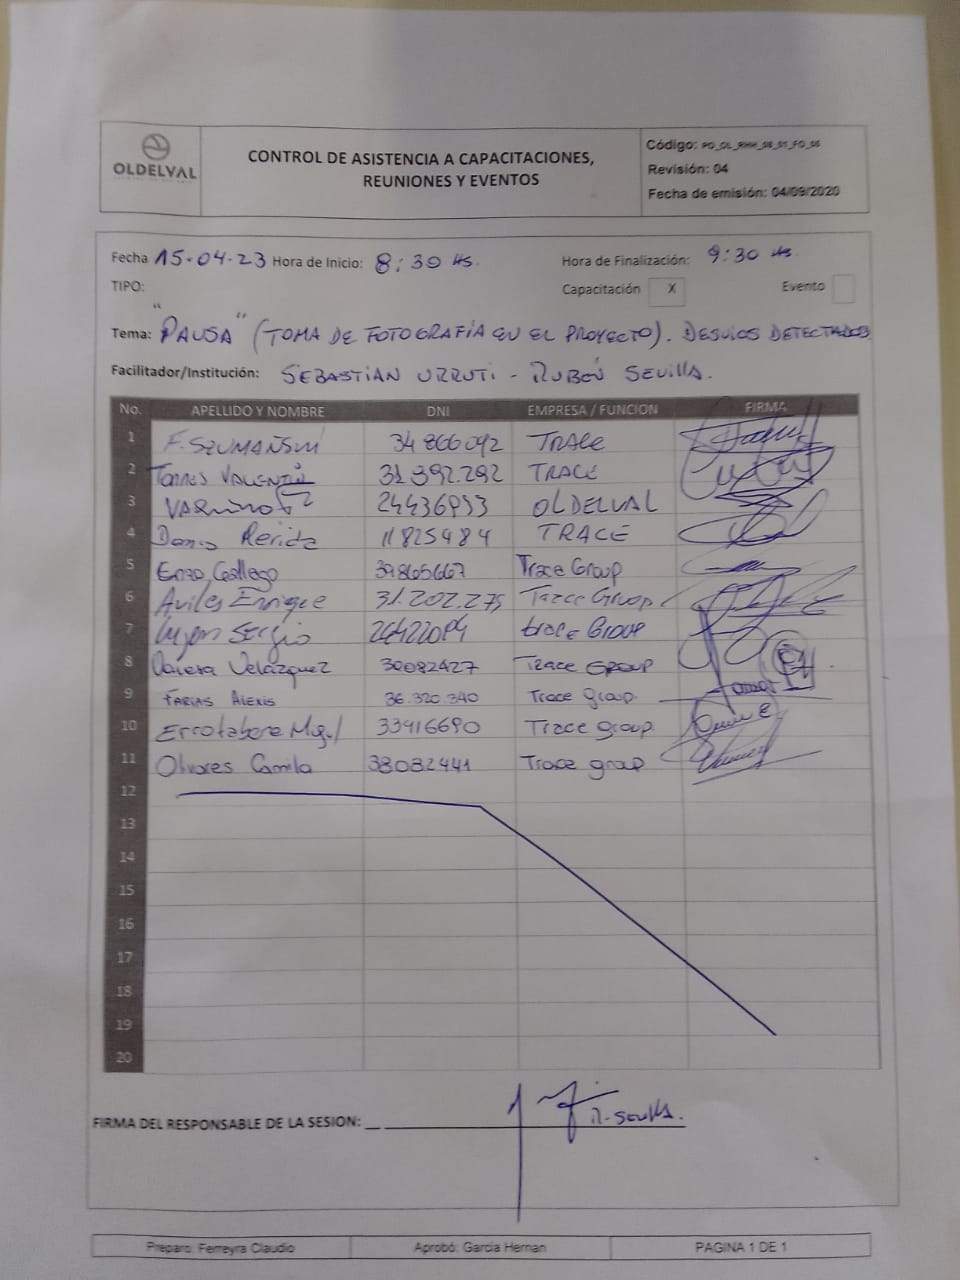 OLDELVAL
CONTROL DE ASISTENCIA A CAPACITACIONES,
REUNIONES Y EVENTOS
Código: PO_OL_RHH_08_01_FO_05
Revisión: 04
Fecha de emisión: 04/09/2020
Fecha 15-04-23 Hora de Inicio: 8:30 Hs. Hora de Finalización: 9:30 Hs.
TIPO: Capacitación X Evento
Tema: "PAUSA" (TOMA DE FOTOGRAFÍA EN EL PROYECTO). DESVIOS DETECTADOS
Facilitador/Institución: SEBASTIAN URRUTI - RUBÉN SEVILLA.
No. APELLIDO Y NOMBRE DNI EMPRESA / FUNCION FIRMA
1 F. SZUMAÑSKI 34866092 TRACE
2 Torres VALENTÍN 31.392.292 TRACE
3 24436953 OLDELVAL
4 11825484 TRACE
5 Enzo Gallego 39865667 Trace Group
6 Aviles Enrique 31.202.275 Trace Group
7 Sergio 26422084 trace Group
8 Velázquez 30082427 TRACE GROUP
9 FARIAS ALEXIS 36.320.340 Trace group
10 Errotabere 33416690 Trace group
11 Olivares Camila 38082441 Trace group
12
13
14
15
16
17
18
19
20
FIRMA DEL RESPONSABLE DE LA SESION: R. Sevilla.
Preparo: Ferreyra Claudio Aprobó: Garcia Hernan PAGINA 1 DE 1